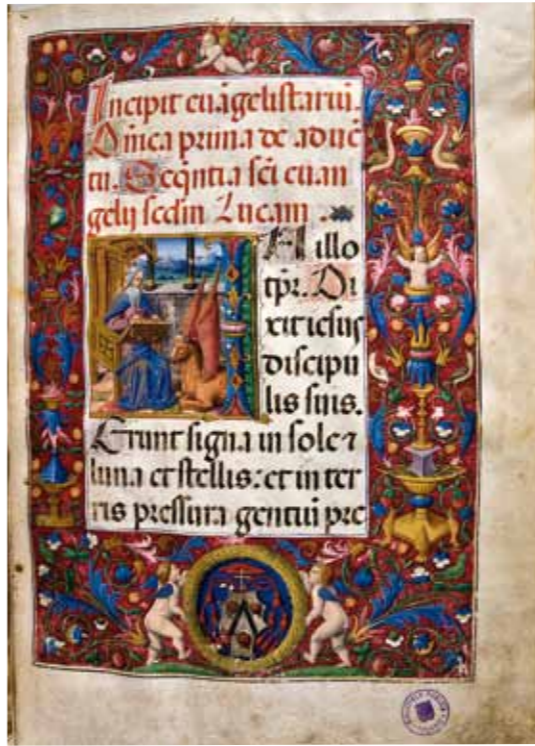 Incipit euãgelistariũ.
Dñica prima de aduẽ
tu. Seq̃ntia sc̃i euan
gelij scd̃m Lucam
N illo
tp̃r. Di
xit iesus
discipu
lis suis.
Erunt signa in sole ⁊
luna et stellis: et in ter
ris pressura gentiuʒ pre